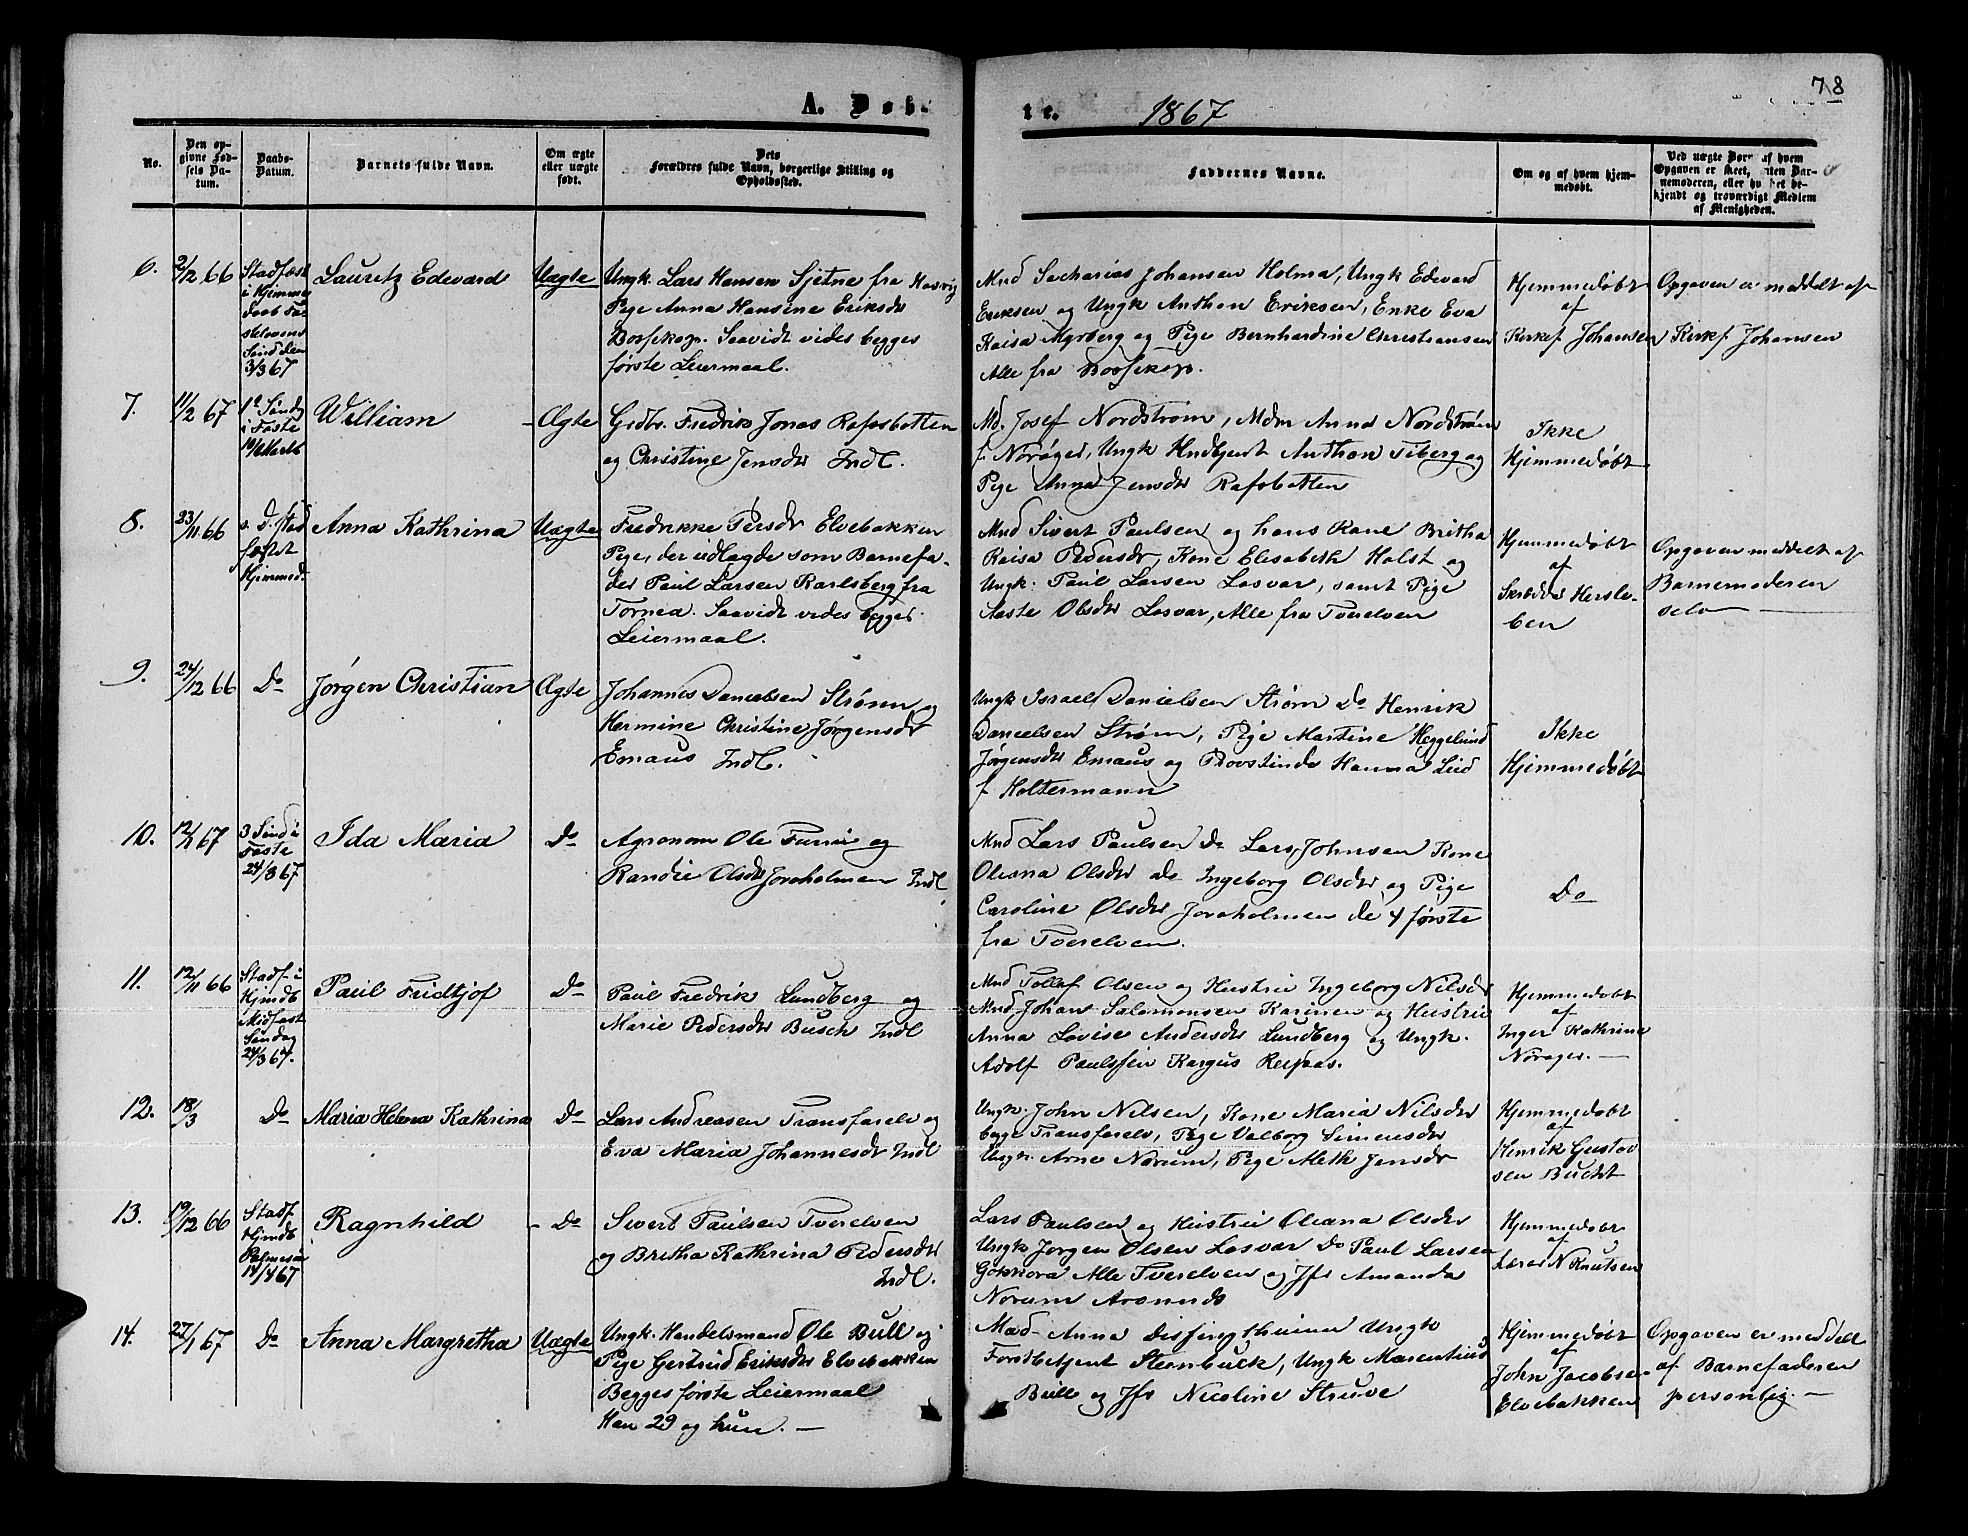 78
A. Døbte. 1867
No.
Den opgivne Fødsels Datum.
Daabs-Datum.
Barnets fulde Navn.
Om ægte eller uægte født.
Dets Forældres fulde Navn, borgerlige Stilling og Opholdssted.
Faddernes Navne.
Om og af hvem hjemmedøbt.
Ved uægte Børn af hvem Opgaven er skeet, enten Barnemoderen, eller hvilket bekjendt og troværdigt Medlem af Menigheden.
6. 2/12 66
Stadfæst
i Hjemme
daab Fa-
stelavens
Søndden
3/3 67
Lauritz Edevard
Uægte
Ungk. Lars Hansen Sjetne fra
Pige Anna Hansine Eriksdr
Bossekop. Saavidt vides begges
første Leiermaal.
Mnd Sacharias Johansen Holma, Ungk Edevard
Eriksen og Ungk Anthon Eriksen, Enke Eva
Kaisa Myrberg og Pige Bernhardine Christiansen
Alle fra Bossekop.
Hjemmedøbt
af
Kirkes. Johansen
Opgaven er meddelt af
Kirkes. Johansen
7. 11/2 67
1ste Sønd
i Faste
William
Ægte
Grdbr. Fredrik Jonas Rafsbotten
og Christine Jensdr Indl.
Md. Josef Nordstrøm, Mdm Anna Nordstrøm
f. Norager, Ungk Hndbtjent Anthon Fiberg og
Pige Anna Jensdr Rafsbotten
Ikke
Hjemmedøbt
8. 23/11 66
s. D. stad
fæstet
Hjemmed.
Anna Kathrina
Uægte
Fredrikke Persdr Elvebakken
Pige, der udlagde som Barnefa-
der Paul Larsen Karlsberg fra
Tornea. Saavidt vides begges
Leiermaal.
Mnd Sivert Paulsen og hans Kone Britha
Kaisa Pedersdr, Kone Elisabeth Holst og
Ungk. Paul Larsen Losvar, samt Pige
Aaste Olsdr Losvar, Alle fra Tverelven
Hjemmedøbt
af
Skrædder Hersle-
ben
Opgaven meddelt af
Barnemoderen
selv
9. 24/12 66
Do
Jørgen Christian
Ægte
Johannes Danielsen Strøm og
Hermine Christine Jørgensdr
Emaus Indl.
Ungk Israel Danielsen Strøm Do Henrik
Danielsen Strøm, Pige Martine Heggelund
Jørgensdr Emaus og Provstinde Hanna Leid
f. Holtermann
Ikke
Hjemmedøbt
10. 12/1 67
3 Sønd i
Faste
24/3 67
Ida Maria
Do
Agronom Ole Furrie og
Randie Olsdr Joraholmen Indl
Mnd Lars Paulsen Do Lars Johnsen Kone
Oleana Olsdr do Ingeborg Olsdr og Pige
Caroline Olsdr Joraholmen de 4 første
fra Tverelven.
Do
11. 12/11 66
Stadf. i
Hjmdb
Midfast
Søndag
24/3 67.
Paul Fridtjof
Do
Paul Fredrik Lundberg og
Marie Pedersdr Busch Indl
Mnd Tollef Olsen og Hustru Ingeborg Nilsdr
Mnd Johan Salomonsen Karinen og Hustru
Anna Lovise Andersdr Lundberg og Ungk.
Adolf Paulssen Kargus Reipas.
Hjemmedøbt
af
Inger Kathrine
Norager.
12. 18/3
Do
Maria Helena Kathrina
Do
Lars Andreasen Transfarelv og
Eva Maria Johannesdr Indl
Ungk. John Nilsen, Kone Maria Nilsdr
begge Transfarelv, Pige Valborg Simensdr
Ungk. Arne Norum, Pige Meth Jensdr
Hjemmedøbt
af
Henrik Gustav
sen Bucht
13. 19/12 66
Stadf.
Hjmdb
Palmesøn
14/4 67
Ragnhild
Do
Sivert Paulsen Tverelven
og Britha Kathrina Pedersdr
Indl.
Lars Paulsen og Hustru Oleana Olsdr
Ungk Jørgen Olsen Losvar Do Paul Larsen
Gokkora Alle Tverelven og Jfr Amanda
Norum
Hjemmedøbt
af
Lærer N Knutsen
14. 27/1 67
Do
Anna Margretha
Uægte
Ungk. Handelsmand Ole Bull og
Pige Gertrud Eriksdr Elvebakken
Begges første Leiermaal
Han 29 og hun. —
Mad. Anna Ungk
Forstbetjent Steenbuck, Ungk Marentius
Bull og Jfr Nicoline Struve
Hjemmedøbt
af
John Jacobsen
Elvebakken
Opgaven er meddelt
af Barnefaderen
personlig. —